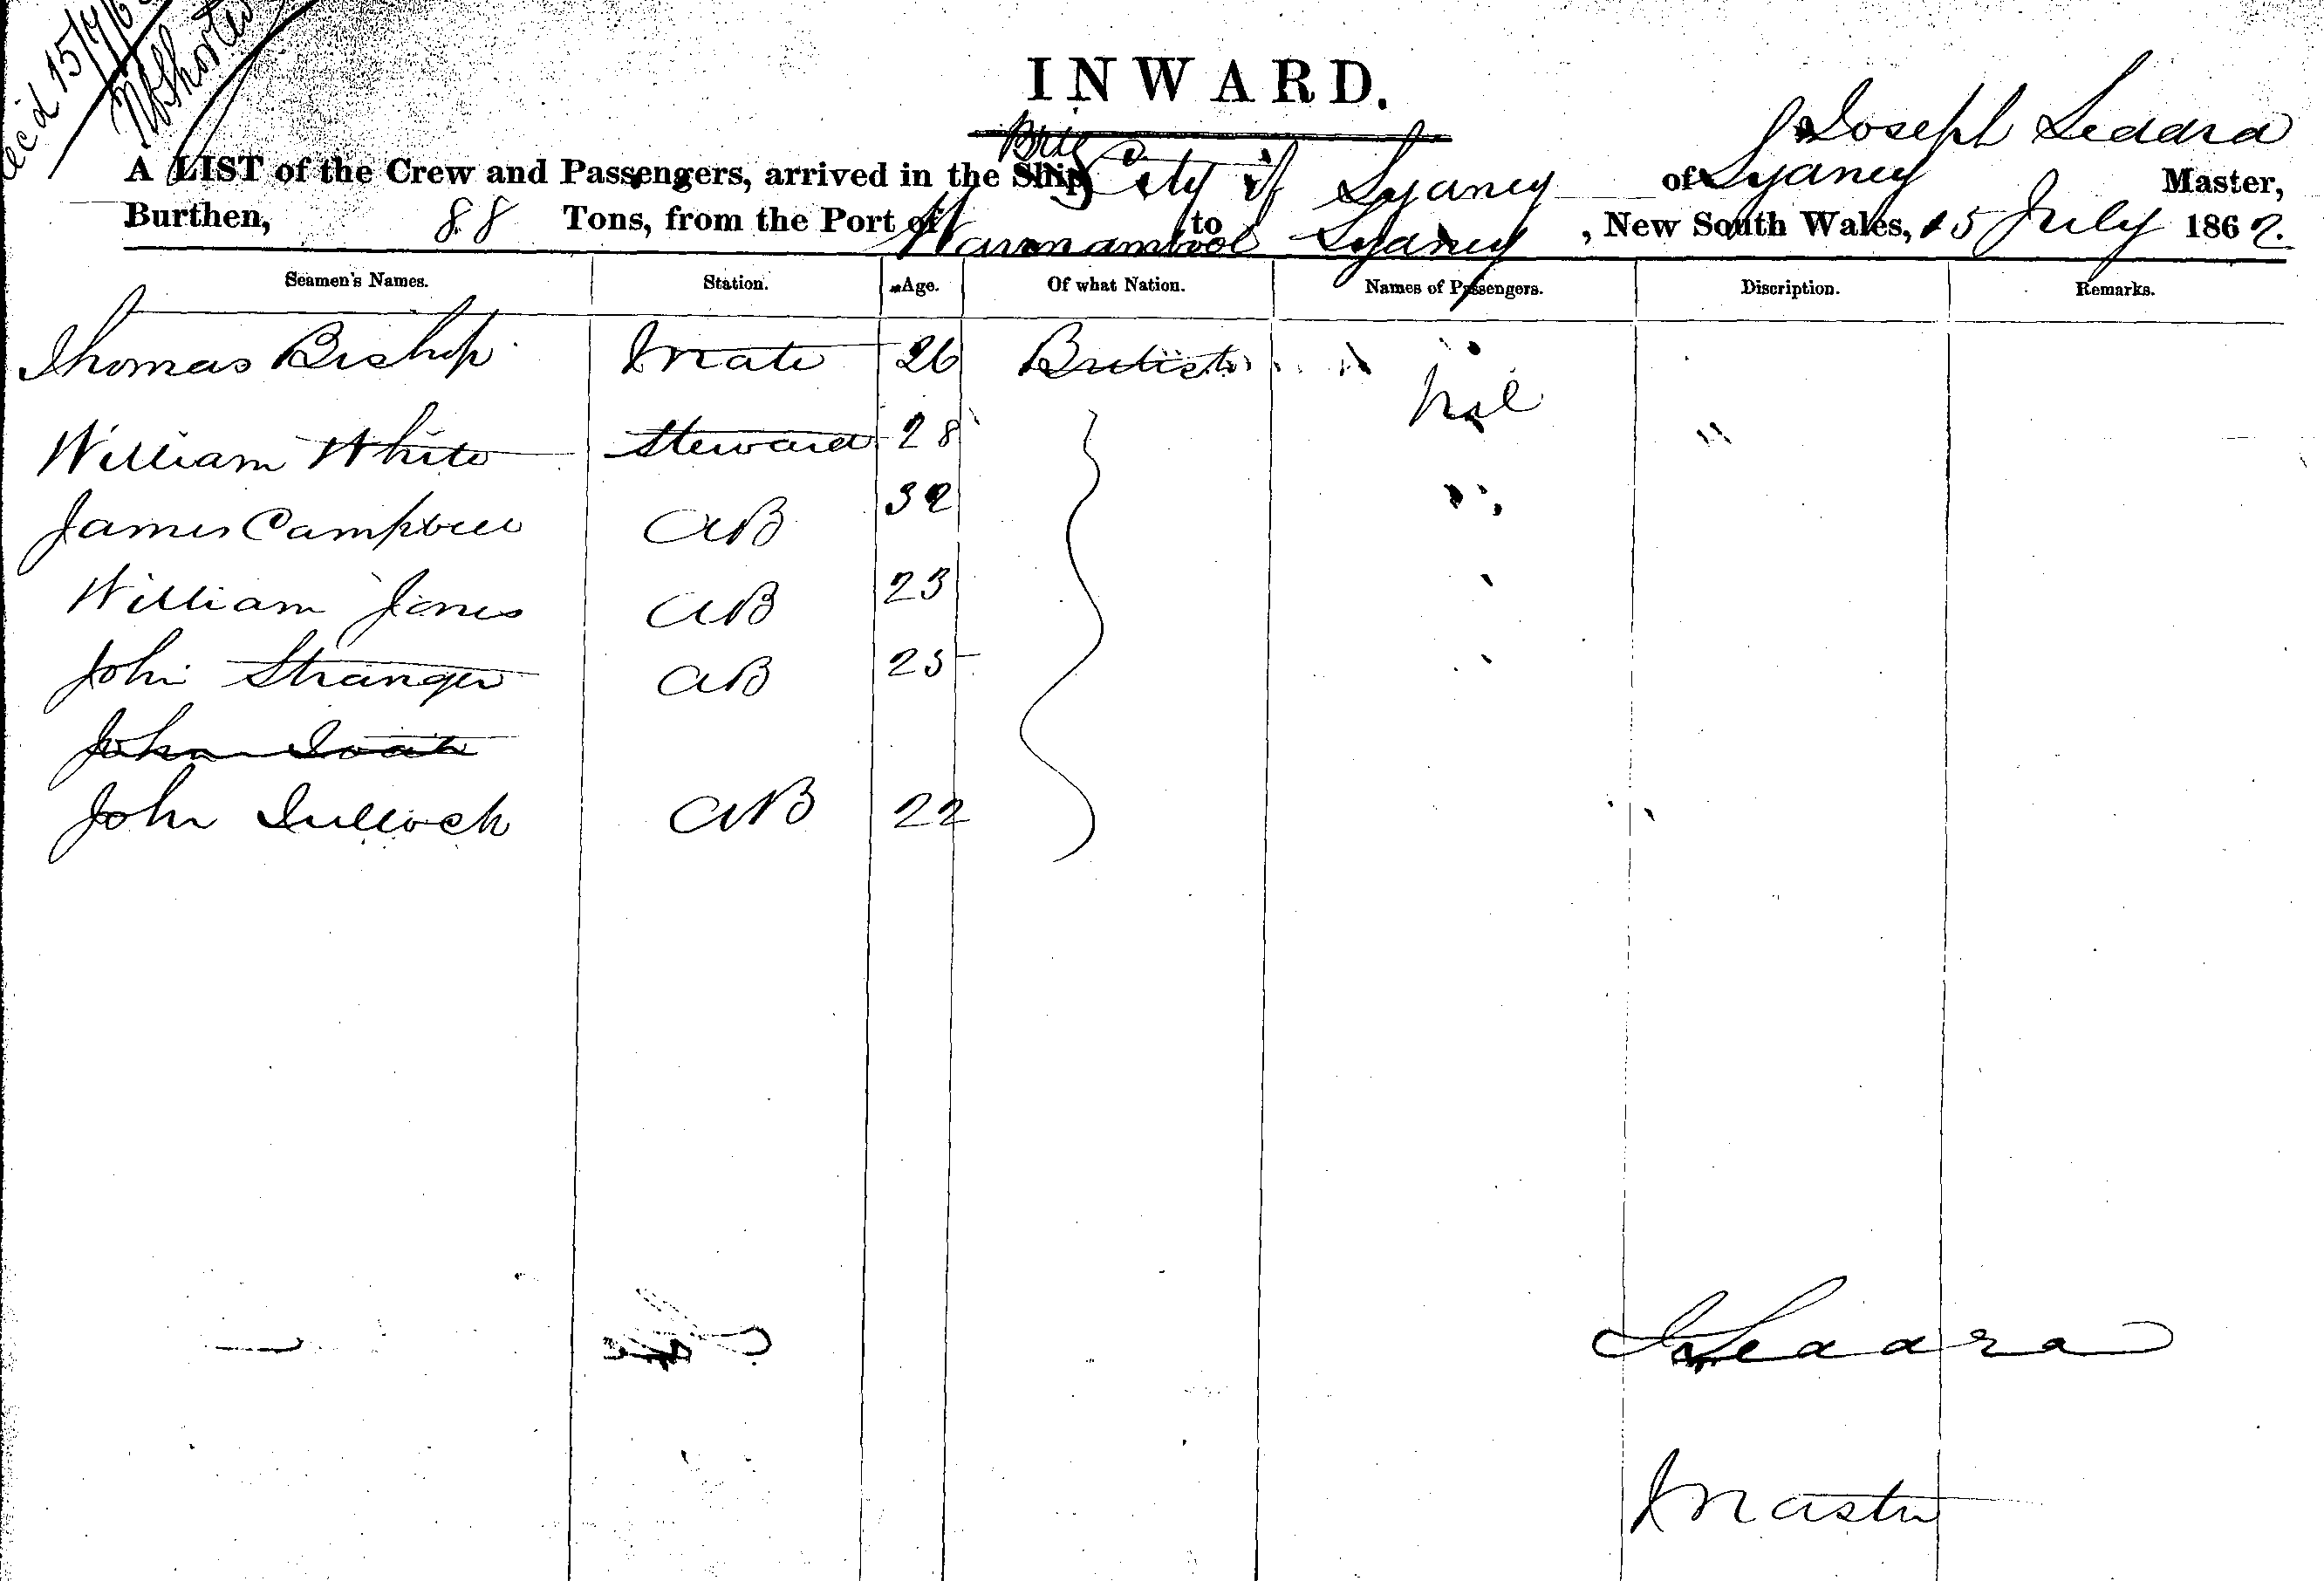 INWARD.
Joseph
A LIST of the Crew and Passengers, arrived in the Ship Brig City of Sydney of Sydney Master,
Burthen, 88 Tons, from the Port of Warrnambool to Sydney, New South Wales, 15 July 1862.
Seamen's Names. Station. Age. Of what Nation. Names of Passengers. Discription. Remarks.
Thomas Bishop Mate 26 British nil
William White Steward 28
James Campbell AB 32
William Jones AB 23
John Stranger AB 25
John
John Tullock AB 22
Master